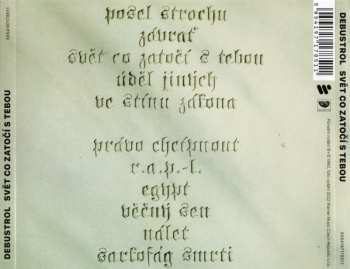 posel strachu
závrať
svět co zatočí s tebou
úděl jiných
ve stínu zákona
právo chcípnout
r.a.p.-l.
egypt
věčný sen
nálet
sarkofág smrti
DEBUSTROL SVĚT CO ZATOČÍ S TEBOU
DEBUSTROL SVĚT CO ZATOČÍ S TEBOU